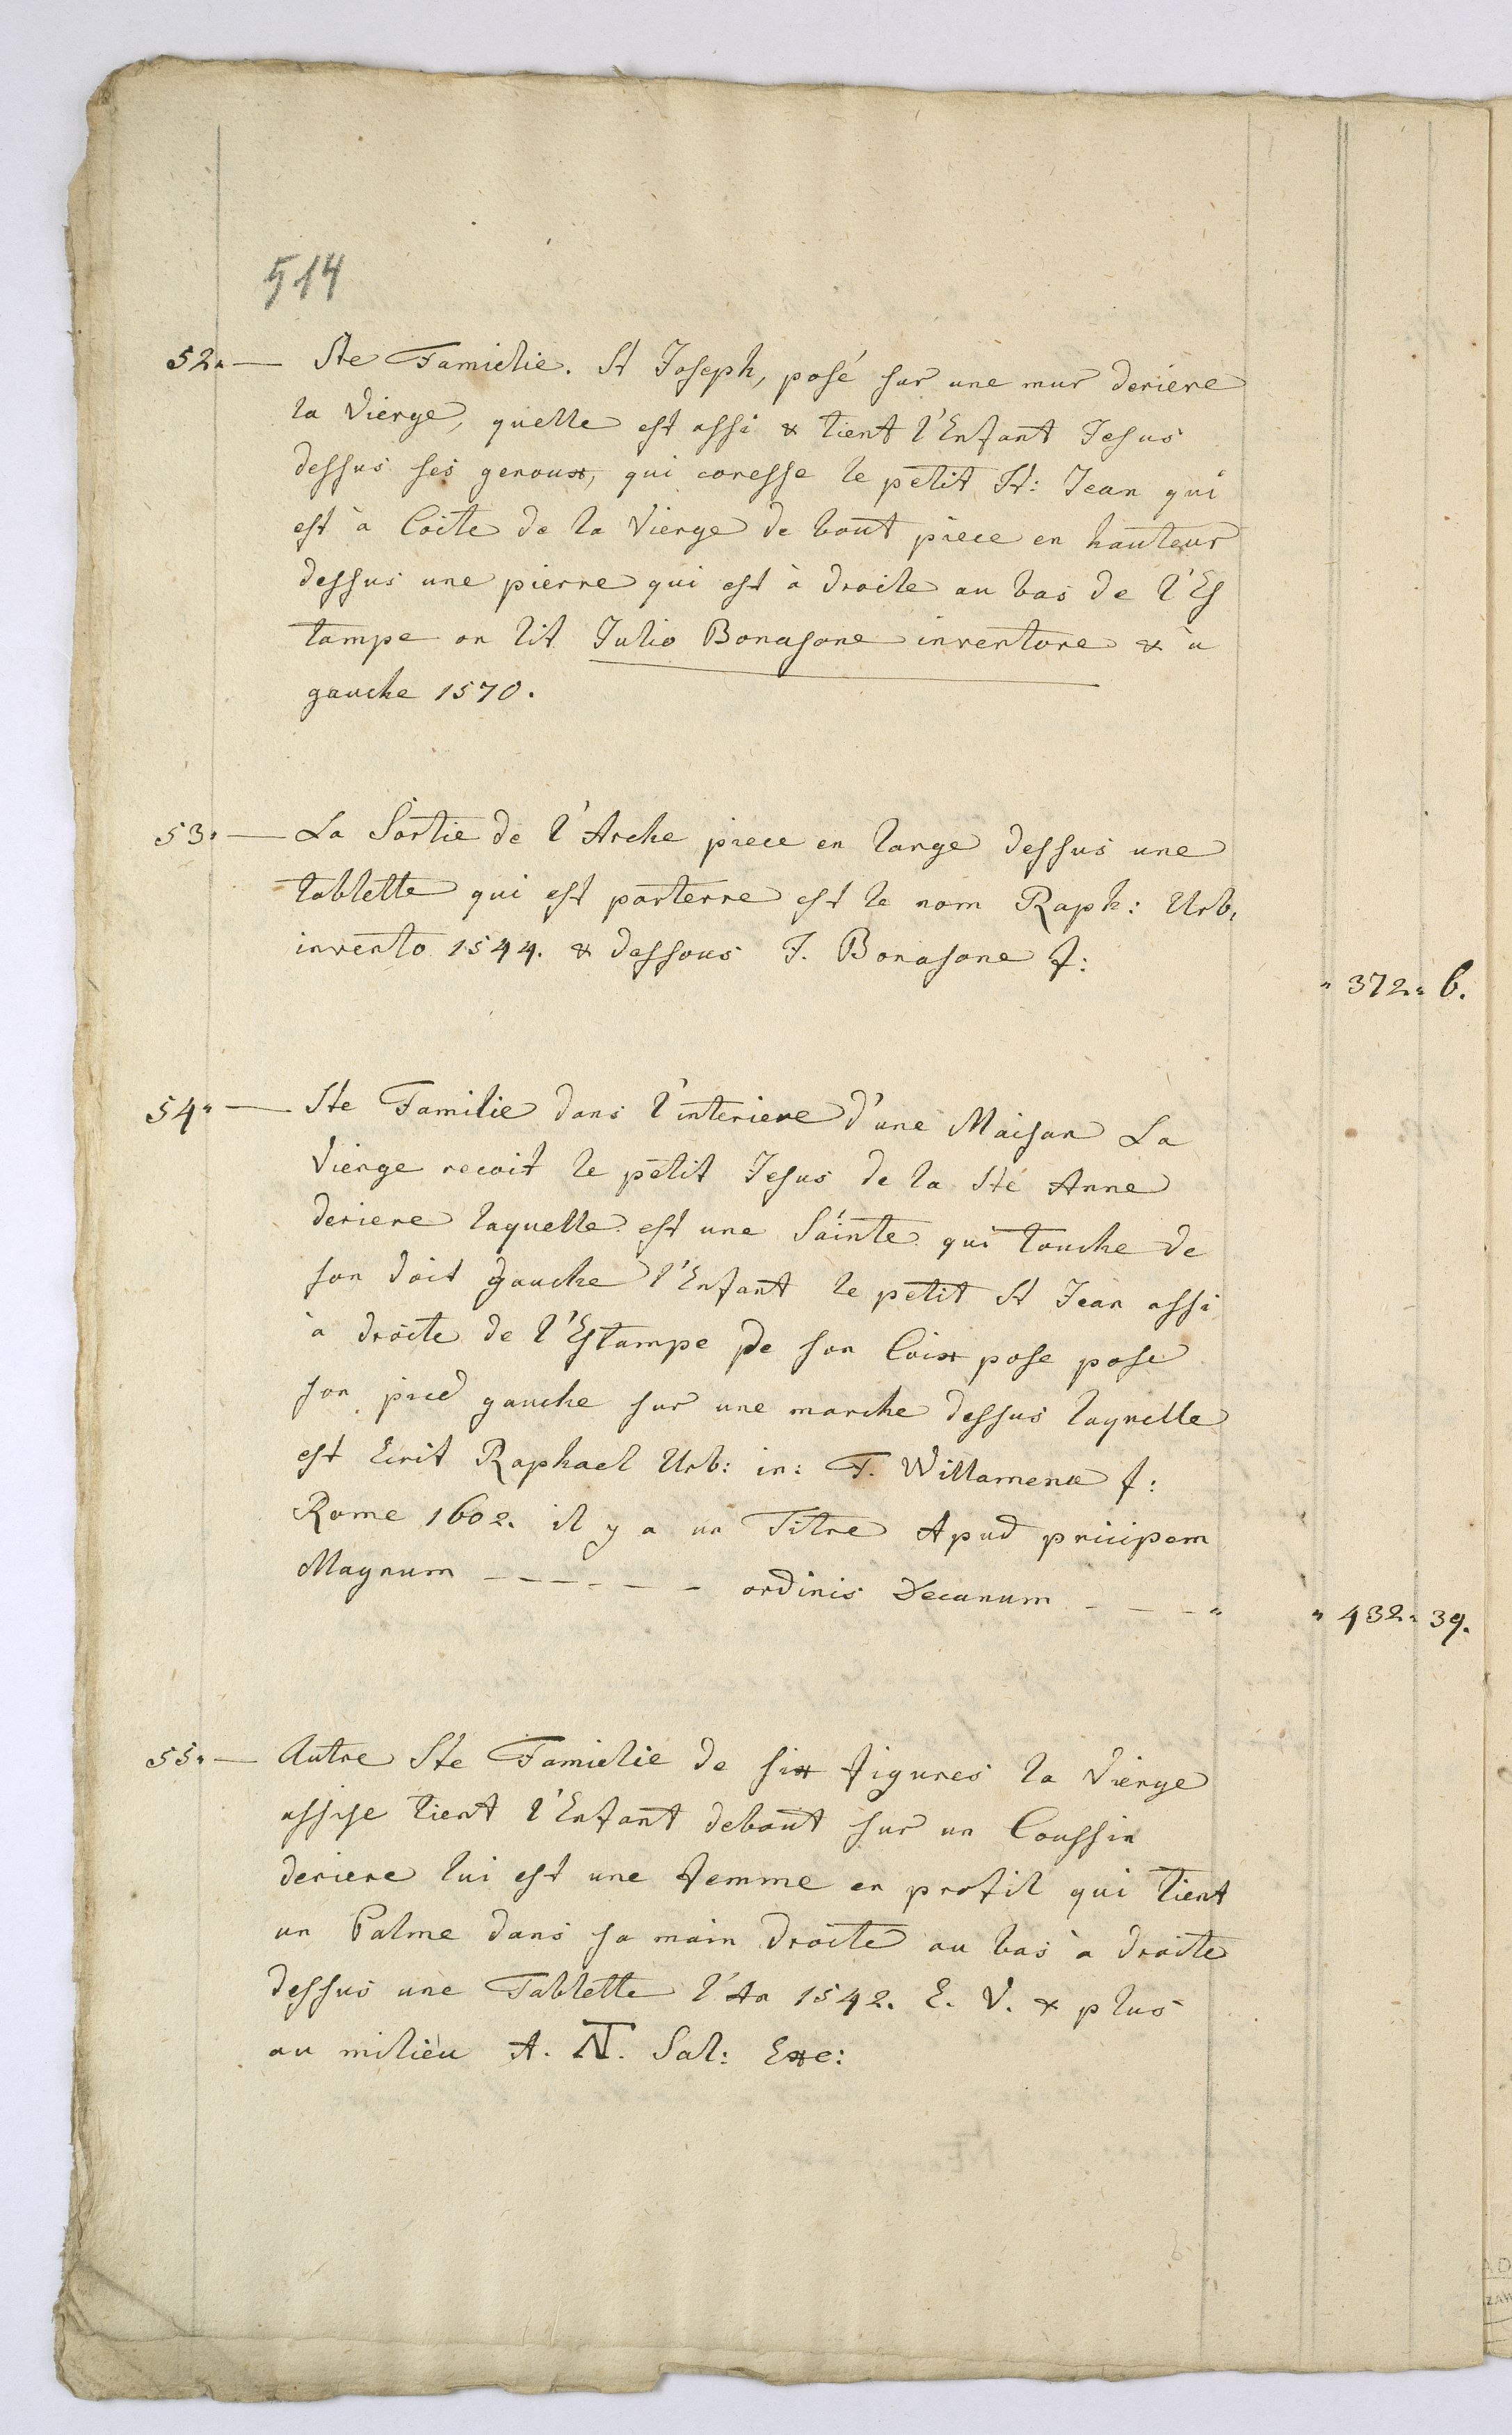 514
52. — Ste Famielie. St Joseph, posé sur une mur deriere
la Vierge, quelle est assi & tient l'Enfant Jesus
dessus ses genoux, qui caresse le petit St: Jean qui
est à Coite de la Vierge de bout piece en hauteur
dessus une pierre qui est à droite au bas de l'Es
tampe on lit Julio Bonasone inventore & à
gauche 1570.
53. — La Sortie de l'Arche piece en large dessus une
tablette qui est parterre est le nom Raph: Urb.
invento 1544. & dessous J. Bonasone f:
" 372. 6.
54. — Ste Familie dans l'interiere d'une Maison La
Vierge recoit le petit Jesus de la Ste Anne
deriere laquelle est une Sainte qui touche de
son doit gauche l'Enfant le petit St Jean assi
à droite de l'Estampe de son Coix pose pose
son pied gauche sur une marche dessus laquelle
est Ecrit Raphael Urb: in: F. Willamena f:
Rome 1602. il y a un Titre Apud pricipem
Magnum - - - - - - - ordinis Decanum - - - "
" 432. 39.
55. — Autre Ste Famielie de six figures la Vierge
assise tient l'Enfant debout sur un Coussin
deriere lui est une femme en profil qui tient
un Palme dans sa main droite au bas à droite
dessus une Tablette l'An 1542. E. V. & plus
au milieu A. NT. Sal: Exc: